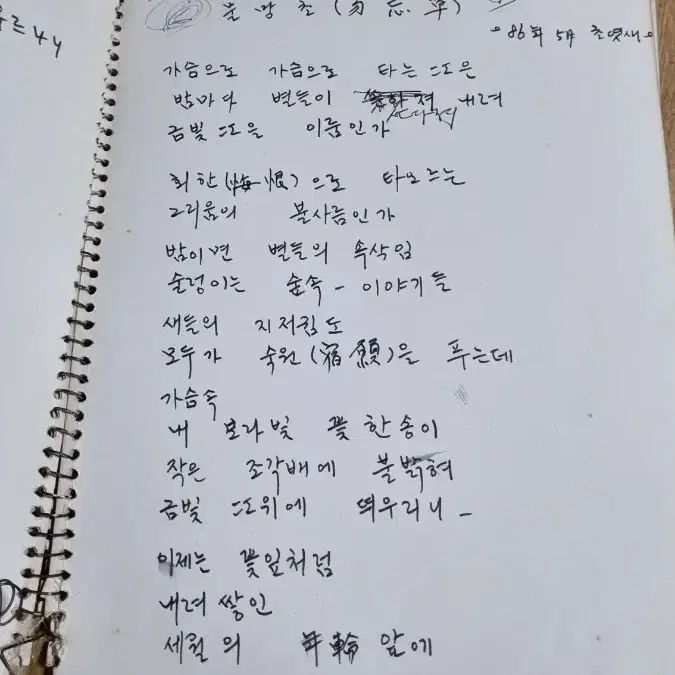 르4y
물망초(勿忘草)
86年 5月 초엿새
가슴으로 가슴으로 타는 뜨은
밤마다 별들이 쏟아져 내려
금빛 뜨을 이룸인가
회한(悔恨)으로 타오르는
그리움의 불사름인가
밤이면 별들의 속삭임
술렁이는 숲속 - 이야기들
새들의 지저귐도
모두가 숙원(宿願)을 푸는데
가슴속
내 보라빛 꽃 한송이
작은 조각배에 불밝혀
금빛 뜨위에 띄우리니 -
이제는 꽃잎처럼
내려 쌓인
세월의 年輪 앞에